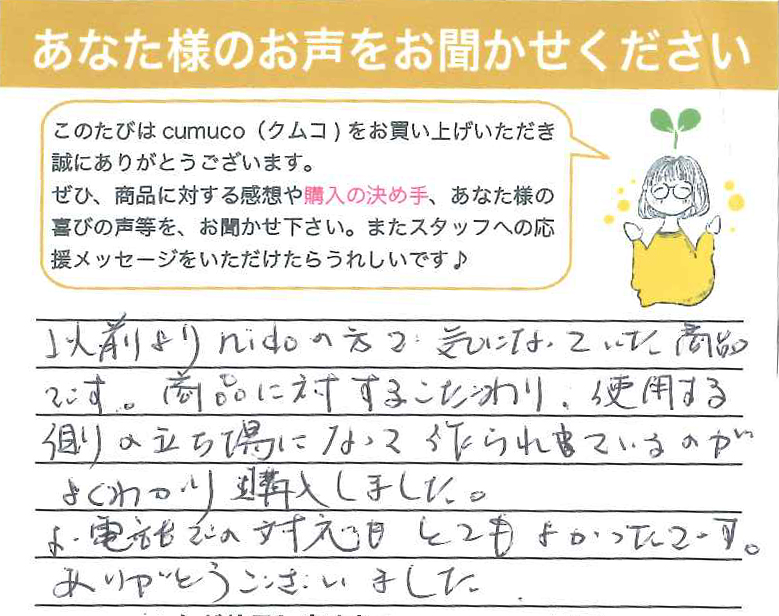 あなた様のお声をお聞かせください
このたびは cumuco（クムコ）をお買い上げいただき
誠にありがとうございます。
ぜひ、商品に対する感想や購入の決め手、あなた様の
喜びの声等を、お聞かせ下さい。またスタッフへの応
援メッセージをいただけたらうれしいです♪
以前より nidoの方で気になっていた商品
です。商品に対するこだわり、使用する
側の立ち場になって作られているのが
よくわかり購入しました。
お電話での対応もとてもよかったです。
ありがとうございました。